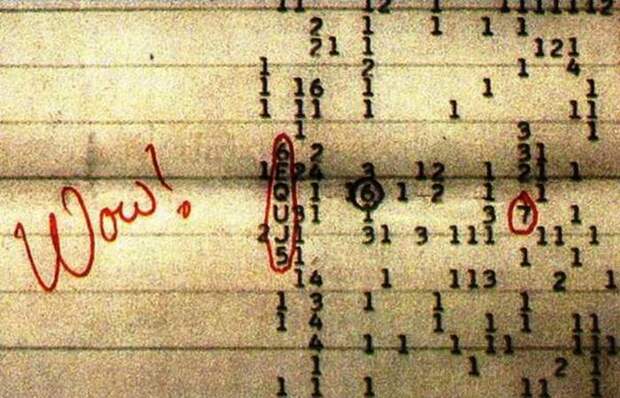 2 1 1 1 1
21 1 121
1 2 1 4
1 16 1 1 1
1 11 1 1 11
1 3 1
6 2 31
1E24 3 12 1 21 1
Q 1 16 1 2 1 1
U31 1 3 7 1
Wow!
2J1 31 3 111 11 1
51 1 1
14 1 113 2 1
1 3 1 1 1
1 4 1 1 1 11
4 1 1 1 11 111
1 1 2 1
1 1 1 11 1